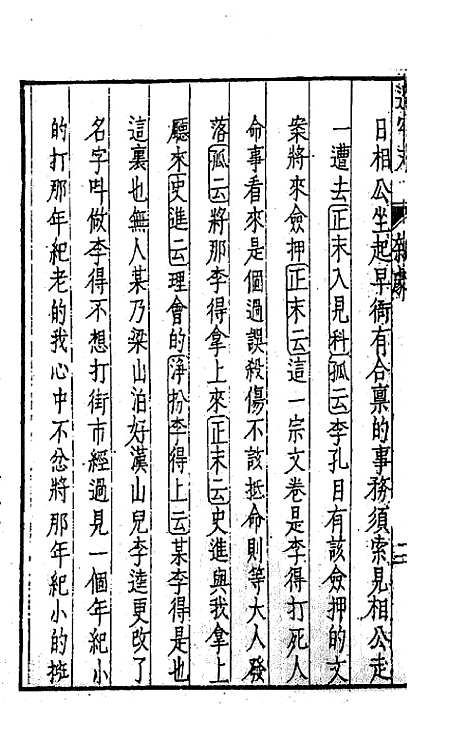 日相公坐起早衙有合稟的事務須索見相公走
一遭去正末入見科孤云李孔目有該僉押的文
案將來僉押正末云這一宗文卷是李得打死人
命事看來是個過誤殺傷不該抵命則等大人發
落孤云將那李得拿上來正末云史進與我拿上
廳來史進云理會的淨扮李得上云某李得是也
這裏也無人某乃梁山泊好漢山兒李逵更改了
名字呌做李得不想打街市經過見一個年紀小
的打那年紀老的我心中不忿將那年紀小的搬